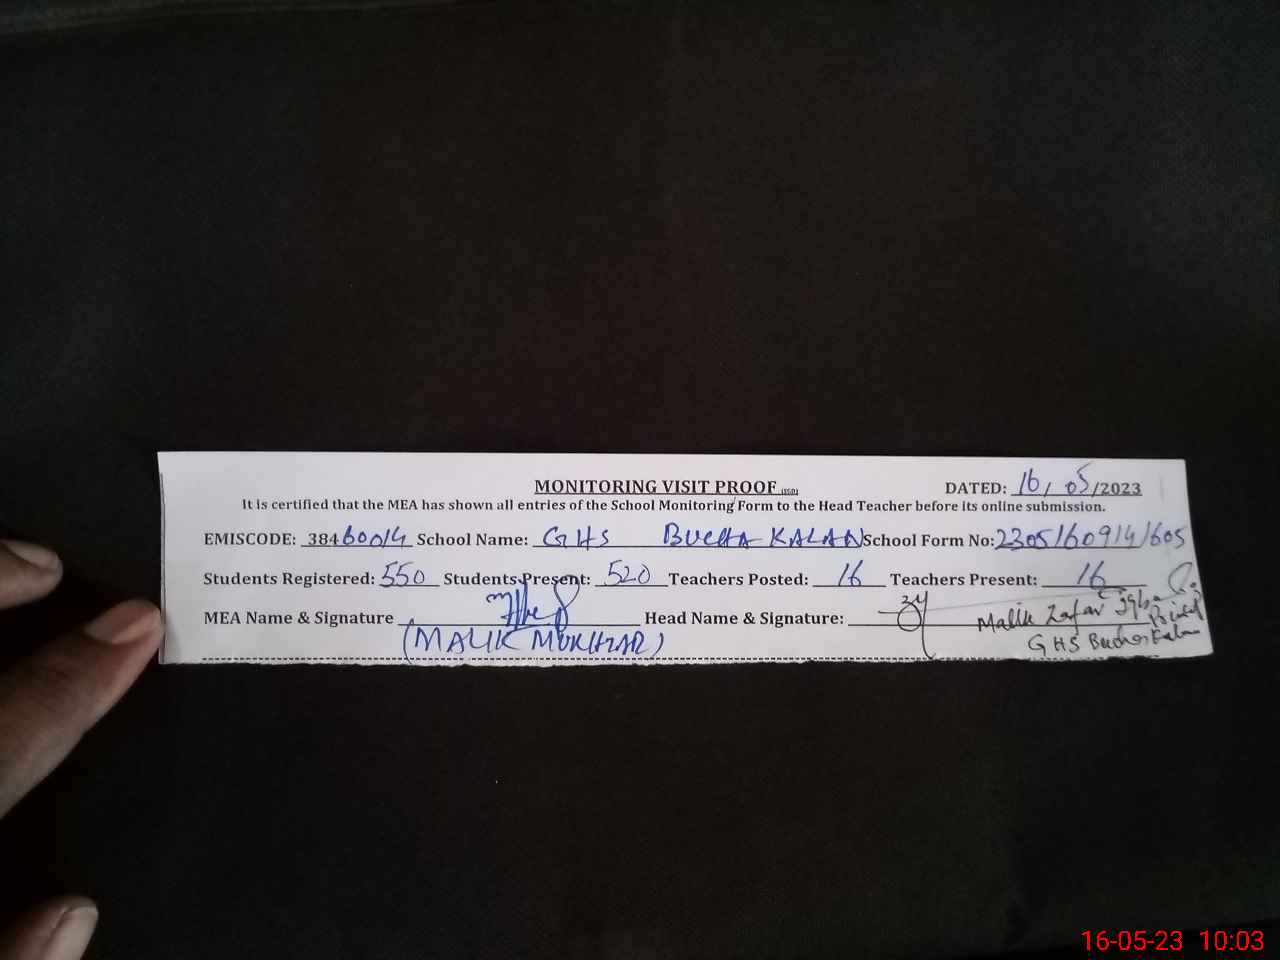 MONITORING VISIT PROOF DATED: 16/05/2023
It is certified that the MEA has shown all entries of the School Monitoring Form to the Head Teacher before its online submission.
EMISCODE: 38460014 School Name: GHS BUCHA KALAN School Form No:
Students Registered: 550 Students Present: 520 Teachers Posted: 16 Teachers Present: 16
MEA Name & Signature Head Name & Signature: Malik Zafar Iqbal
(MALIK MUKHTAR) GHS Kalan
16-05-23 10:03